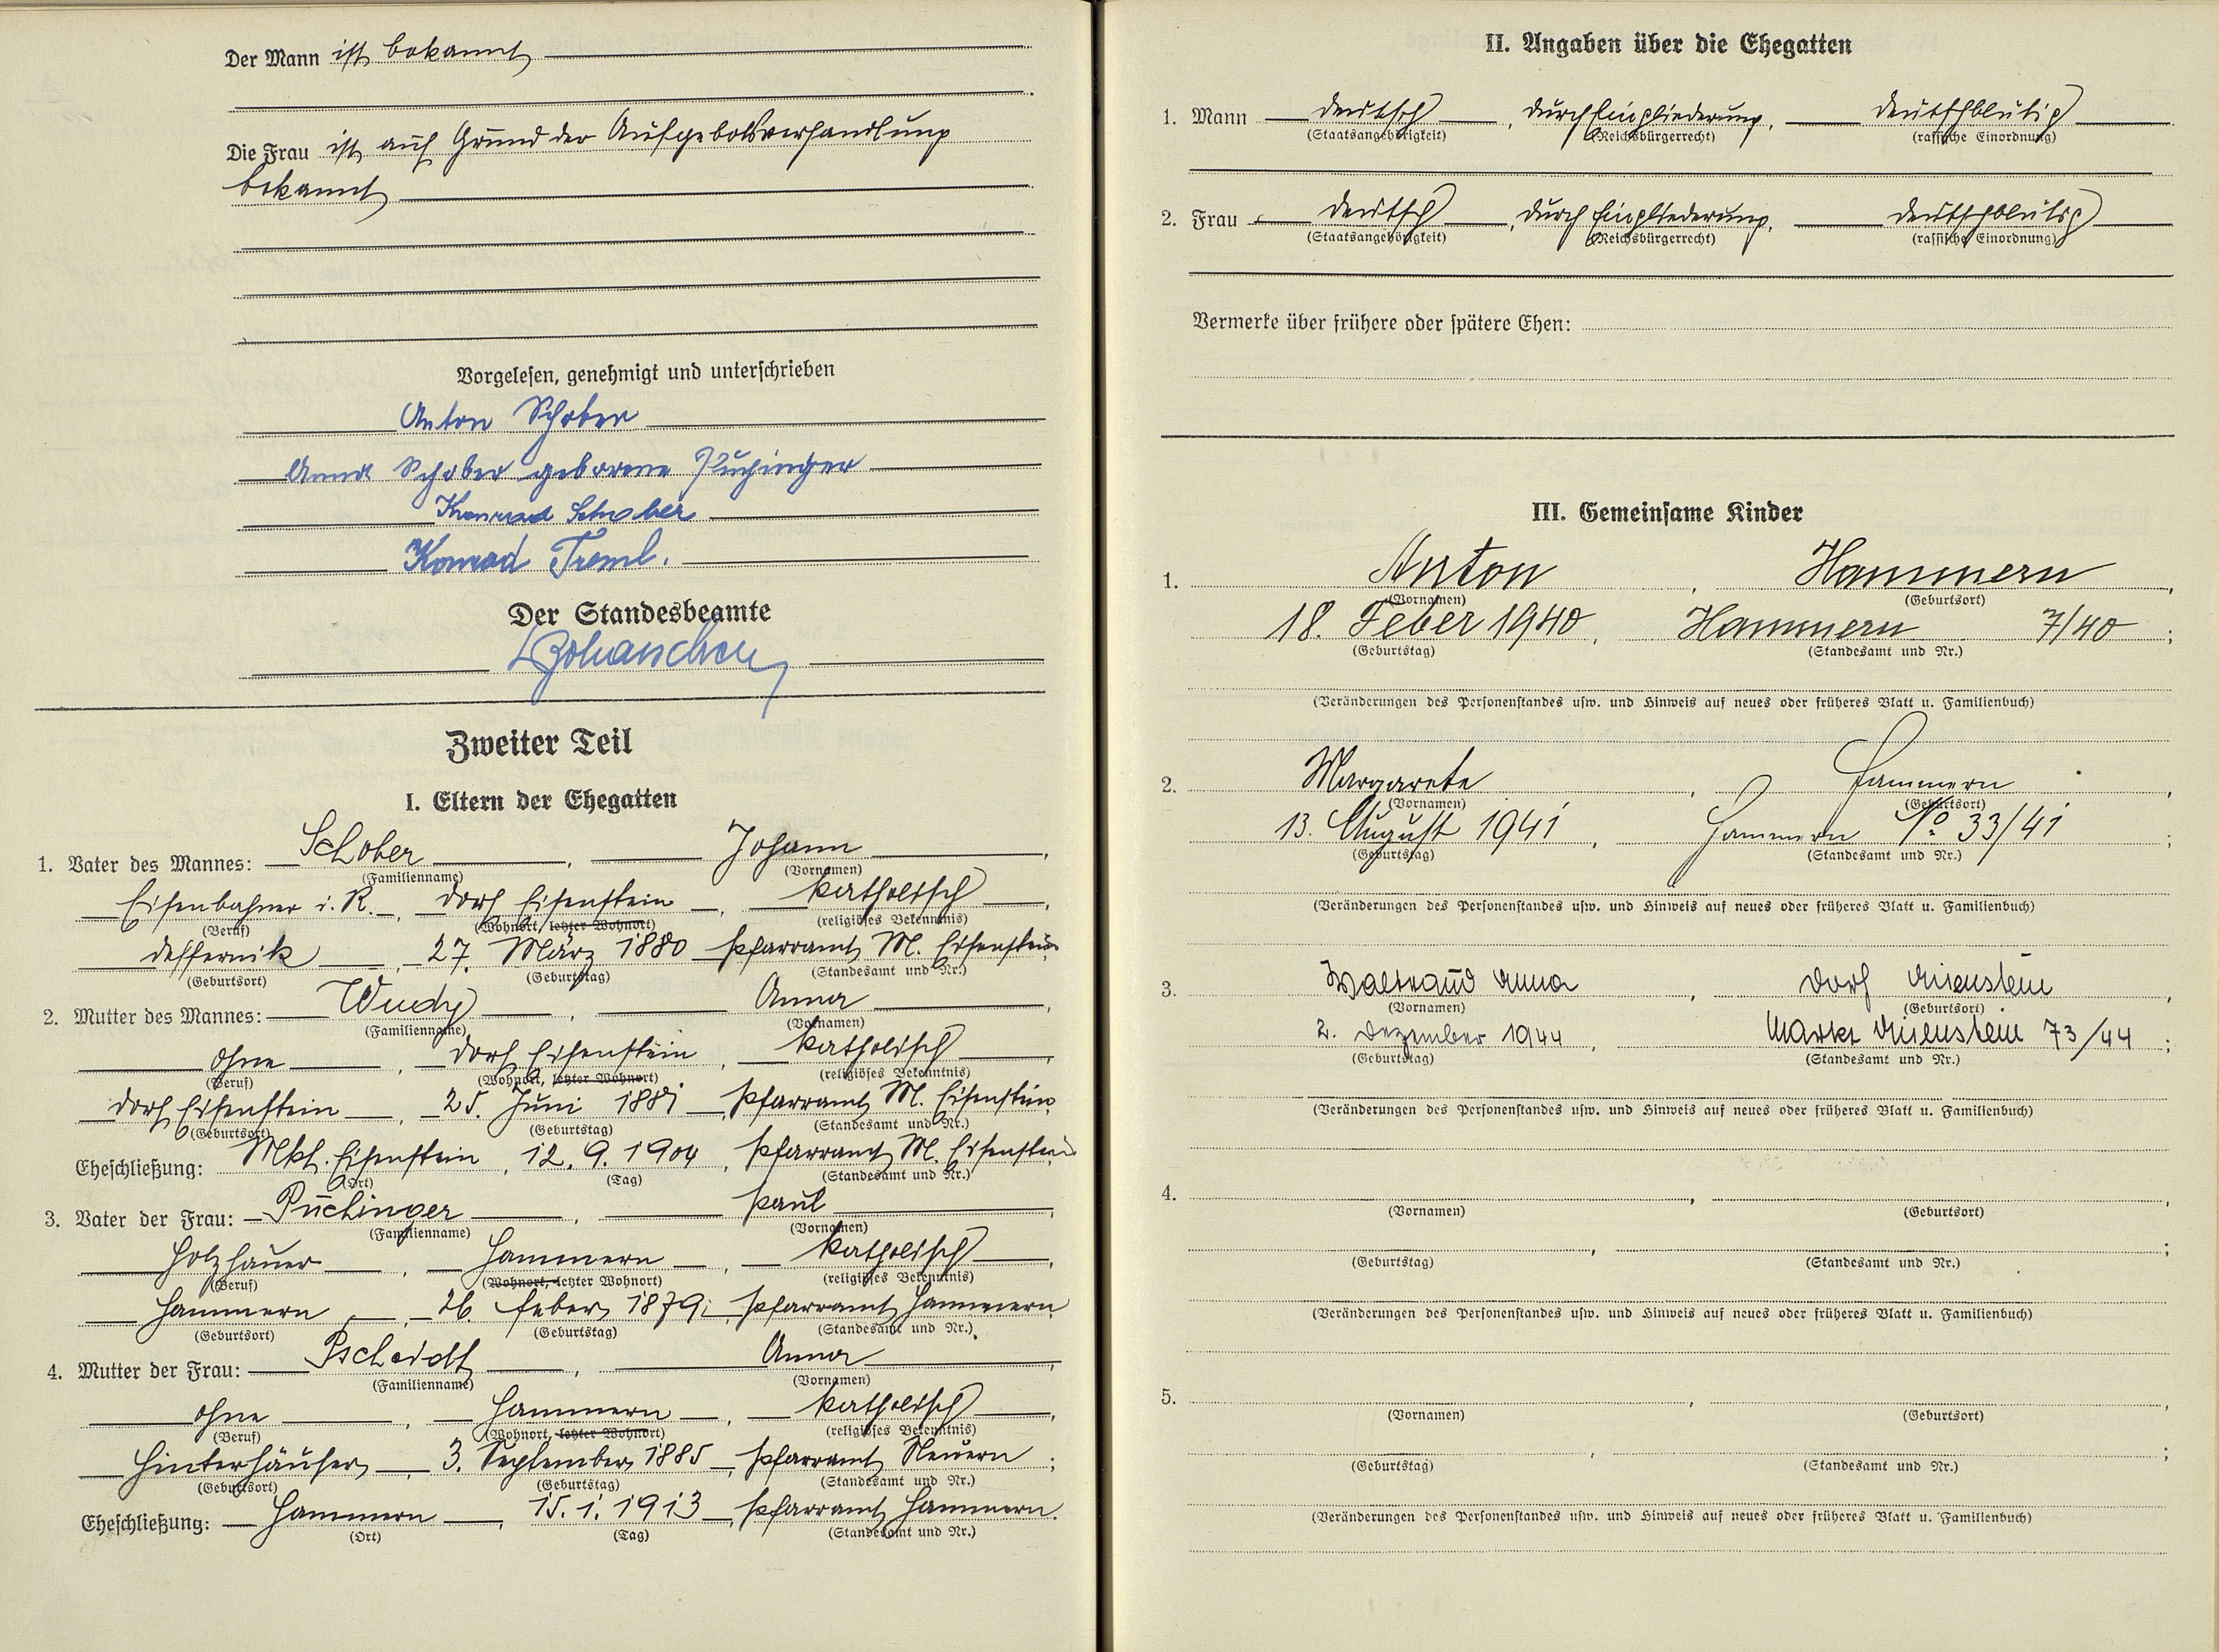 Der Mann ist bekannt
Die Frau ist auf Grund der Aufgebotsverhandlung
bekannt
Vorgelesen, genehmigt und unterschrieben
Anton Schober
Anna Schober geborene Puchinger
Konrad Schober
Konrad Treml.
Der Standesbeamte
Zweiter Teil
I. Eltern der Ehegatten
1. Vater des Mannes: Schober, Johann,
(Familienname) (Vornamen)
Eisenbahner i. R., Dorf Eisenstein, katholisch,
(Beruf) (Wohnort, letzter Wohnort) (religiöses Bekenntnis)
Deffernik, 27. März 1880 Pfarramt M. Eisenstein
(Geburtsort) (Geburtstag) (Standesamt und Nr.)
2. Mutter des Mannes: Wudy, Anna,
(Familienname) (Vornamen)
ohne, Dorf Eisenstein, katholisch,
(Beruf) (Wohnort, letzter Wohnort) (religiöses Bekenntnis)
Dorf Eisenstein, 25. Juni 1881, Pfarramt M. Eisenstein
(Geburtsort) (Geburtstag) (Standesamt und Nr.)
Eheschließung: Mkt. Eisenstein, 12. 9. 1904, Pfarramt M. Eisenstein
(Ort) (Tag) (Standesamt und Nr.)
3. Vater der Frau: Puchinger, Paul,
(Familienname) (Vornamen)
Holzhauer, Hammern, katholisch,
(Beruf) (Wohnort, letzter Wohnort) (religiöses Bekenntnis)
Hammern, 26. Feber 1879, Pfarramt Hammern
(Geburtsort) (Geburtstag) (Standesamt und Nr.)
4. Mutter der Frau: Pscheidt, Anna,
(Familienname) (Vornamen)
ohne, Hammern, katholisch,
(Beruf) (Wohnort, letzter Wohnort) (religiöses Bekenntnis)
Hinterhäuser, 3. September 1885, Pfarramt Neuern;
(Geburtsort) (Geburtstag) (Standesamt und Nr.)
Eheschließung: Hammern, 15. 1. 1913, Pfarramt Hammern.
(Ort) (Tag) (Standesamt und Nr.)
II. Angaben über die Ehegatten
1. Mann deutsch, durch Eingliederung, deutschblütig
(Staatsangehörigkeit) (Reichsbürgerrecht) (rassische Einordnung)
2. Frau deutsch, durch Eingliederung, deutschblütig
(Staatsangehörigkeit) (Reichsbürgerrecht) (rassische Einordnung)
Vermerke über frühere oder spätere Ehen:
III. Gemeinsame Kinder
1. Anton, Hammern,
(Vornamen) (Geburtsort)
18. Feber 1940, Hammern 7/40;
(Geburtstag) (Standesamt und Nr.)
(Veränderungen des Personenstandes usw. und Hinweis auf neues oder früheres Blatt u. Familienbuch)
2. Margarete, Hammern,
(Vornamen) (Geburtsort)
13. August 1941, Hammern No 33/41;
(Geburtstag) (Standesamt und Nr.)
(Veränderungen des Personenstandes usw. und Hinweis auf neues oder früheres Blatt u. Familienbuch)
3. Waltraud Anna, Dorf Eisenstein,
(Vornamen) (Geburtsort)
2. Dezember 1944, Markt Eisenstein 73/44;
(Geburtstag) (Standesamt und Nr.)
(Veränderungen des Personenstandes usw. und Hinweis auf neues oder früheres Blatt u. Familienbuch)
4. , ,
(Vornamen) (Geburtsort)
(Geburtstag) (Standesamt und Nr.)
(Veränderungen des Personenstandes usw. und Hinweis auf neues oder früheres Blatt u. Familienbuch)
5. , ,
(Vornamen) (Geburtsort)
(Geburtstag) (Standesamt und Nr.)
(Veränderungen des Personenstandes usw. und Hinweis auf neues oder früheres Blatt u. Familienbuch)